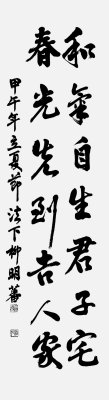 和氣自生君子宅
春光先到吉人家
甲午年立夏節法下柳明蕃